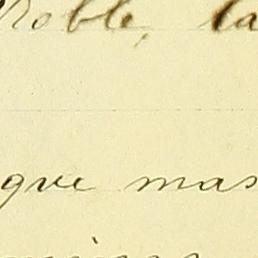 Roble, la
que mas